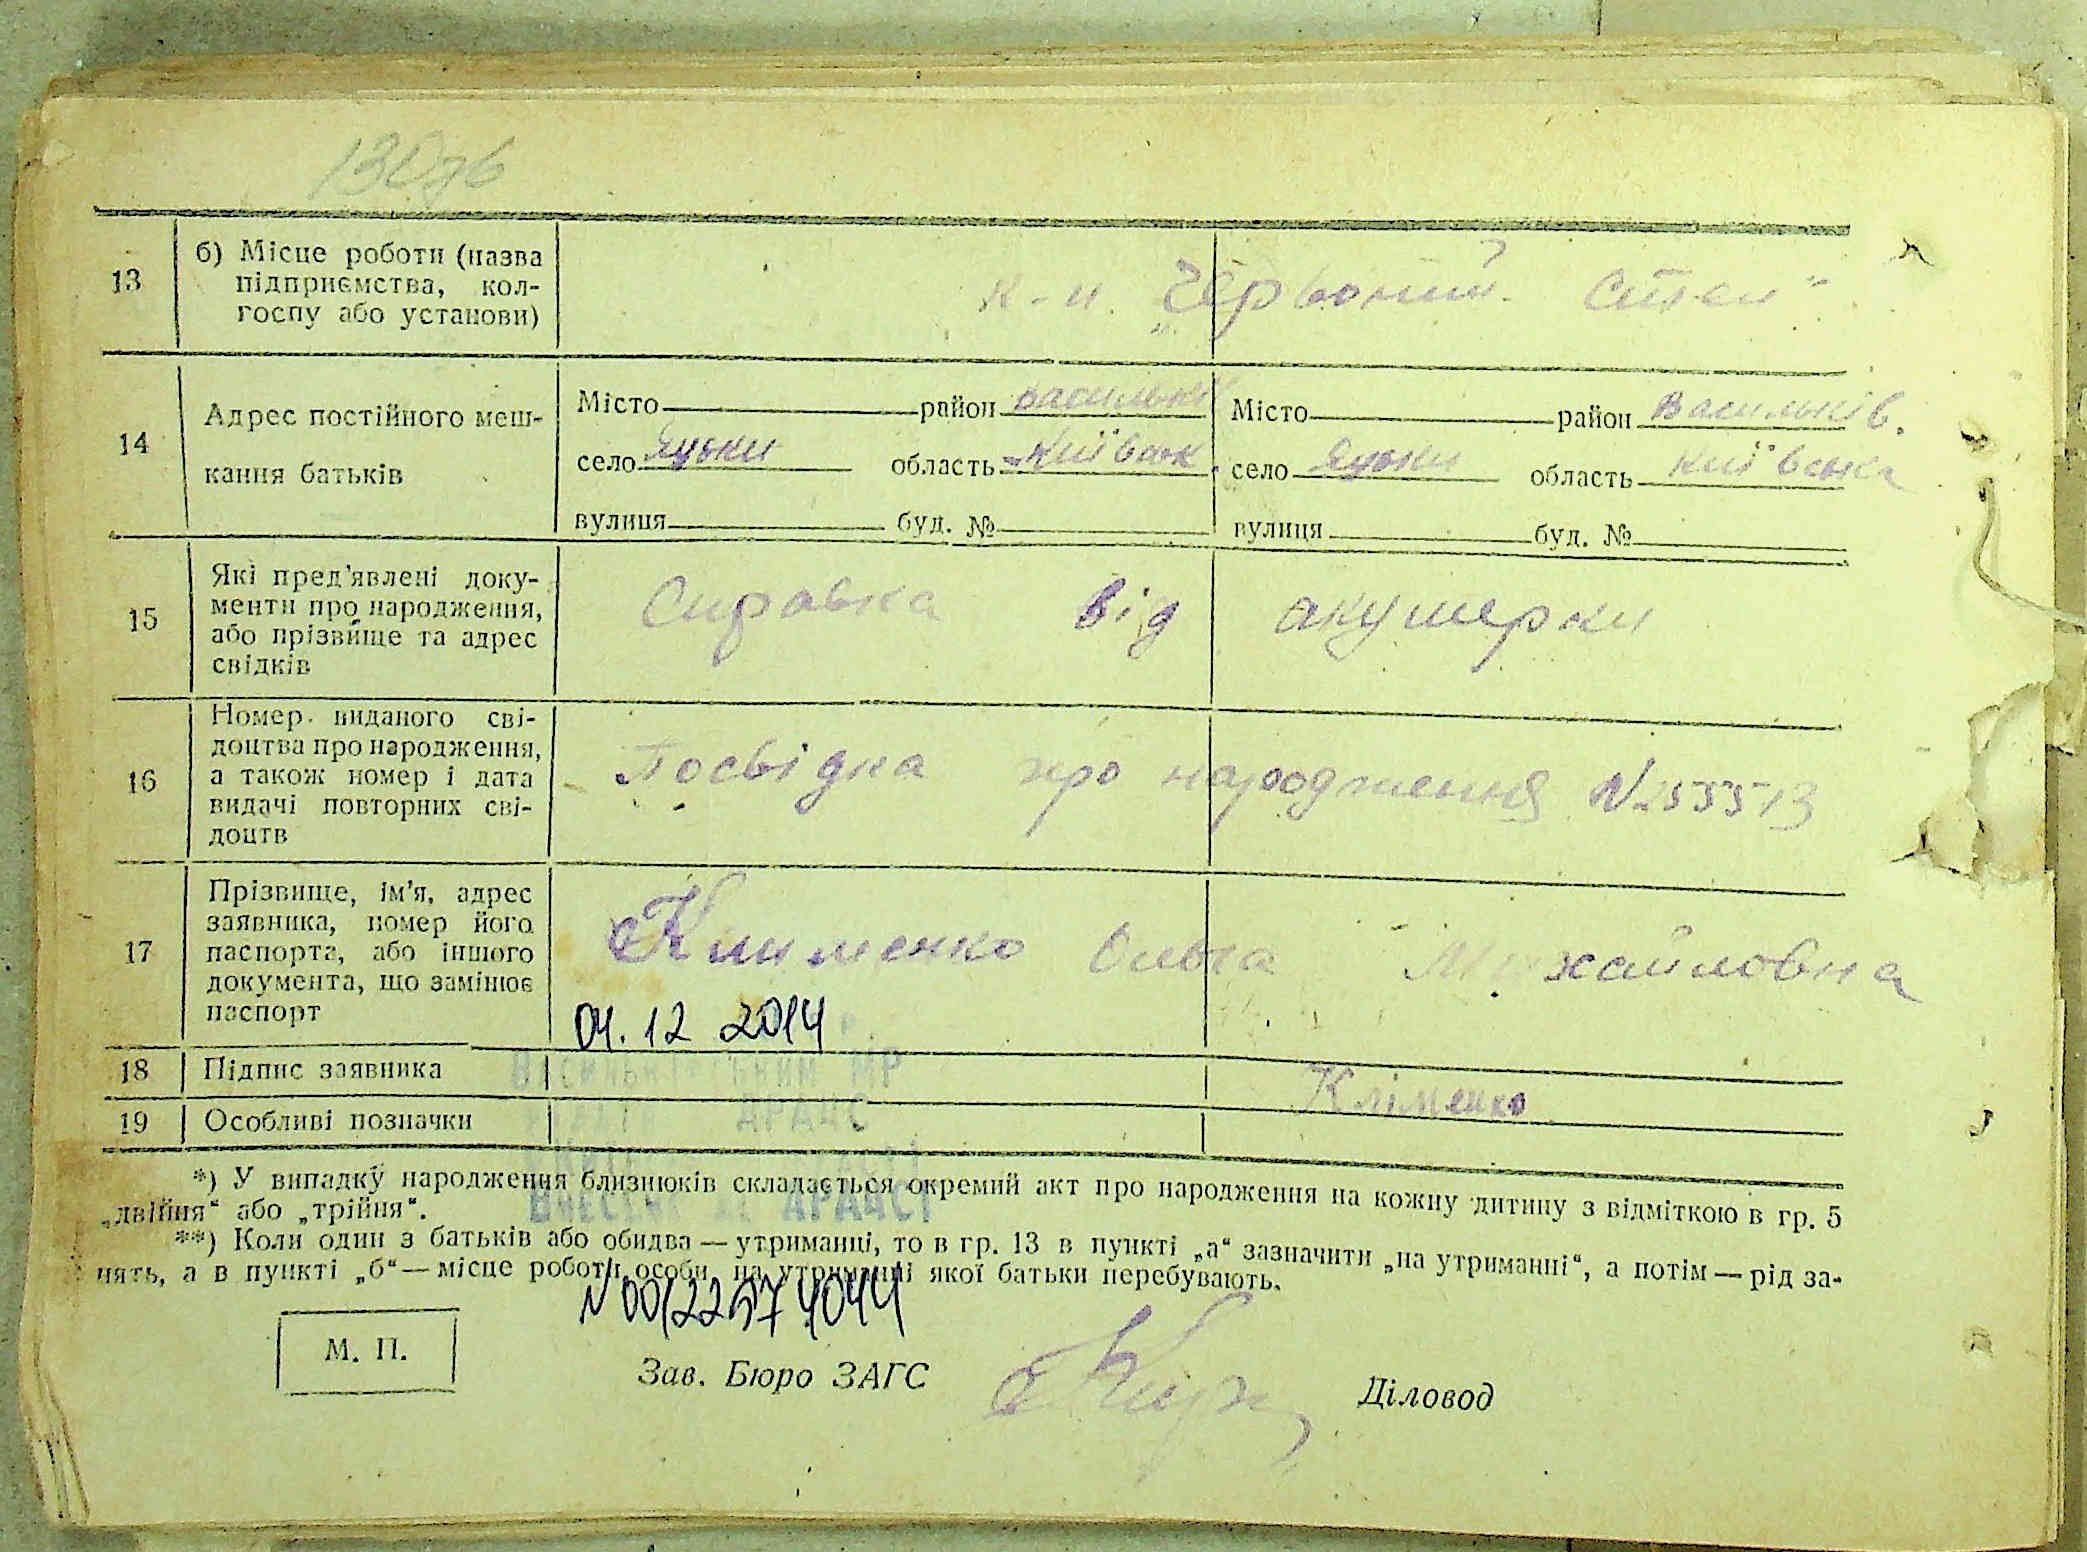 13
б) Місце роботи (назва
підприємства, кол-
госпу або установи)
к-п „Червоний Степ“
14
Адрес постійного меш-
кання батьків
Місто район Васильків
село Яцьки область Київськ.
вулиця буд. №
Місто район Васильків.
село Яцьки область Київська
вулиця буд. №
15
Які пред'явлені доку-
менти про народження,
або прізвище та адрес
свідків
Справка від акушерки
16
Номер виданого сві-
доцтва про народження,
а також номер і дата
видачі повторних сві-
доцтв
Посвідка про народження N 255513
17
Прізвище, ім'я, адрес
заявника, номер його
паспорта, або іншого
документа, що замінює
паспорт
Клименко Ольга Михайловна
04.12 2014
18
Підпис заявника
Кліменко
19
Особливі позначки
Васильківський МР
ДРАЦС
*) У випадку народження близнюків складається окремий акт про народження на кожну дитину з відміткою в гр. 5
„двійня“ або „трійня“.
**) Коли один з батьків або обидва — утриманці, то в гр. 13 в пункті „а“ зазначити „на утриманні“, а потім — рід за-
нять, а в пункті „б“ — місце роботи особи, на утриманні якої батьки перебувають.
М. П.
Зав. Бюро ЗАГС
Діловод